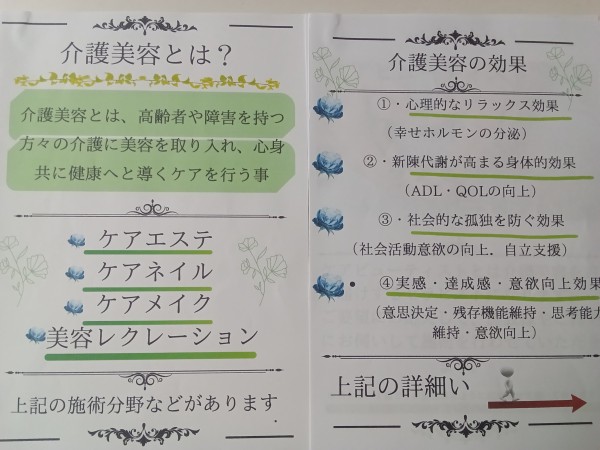 介護美容とは？
介護美容とは、高齢者や障害を持つ
方々の介護に美容を取り入れ、心身
共に健康へと導くケアを行う事
ケアエステ
ケアネイル
ケアメイク
美容レクレーション
上記の施術分野などがあります
介護美容の効果
①・心理的なリラックス効果
（幸せホルモンの分泌）
②・新陳代謝が高まる身体的効果
（ADL・QOLの向上）
③・社会的な孤独を防ぐ効果
（社会活動意欲の向上．自立支援）
• ④実感・達成感・意欲向上効果
（意思決定・残存機能維持・思考能力
維持・意欲向上）
上記の詳細い